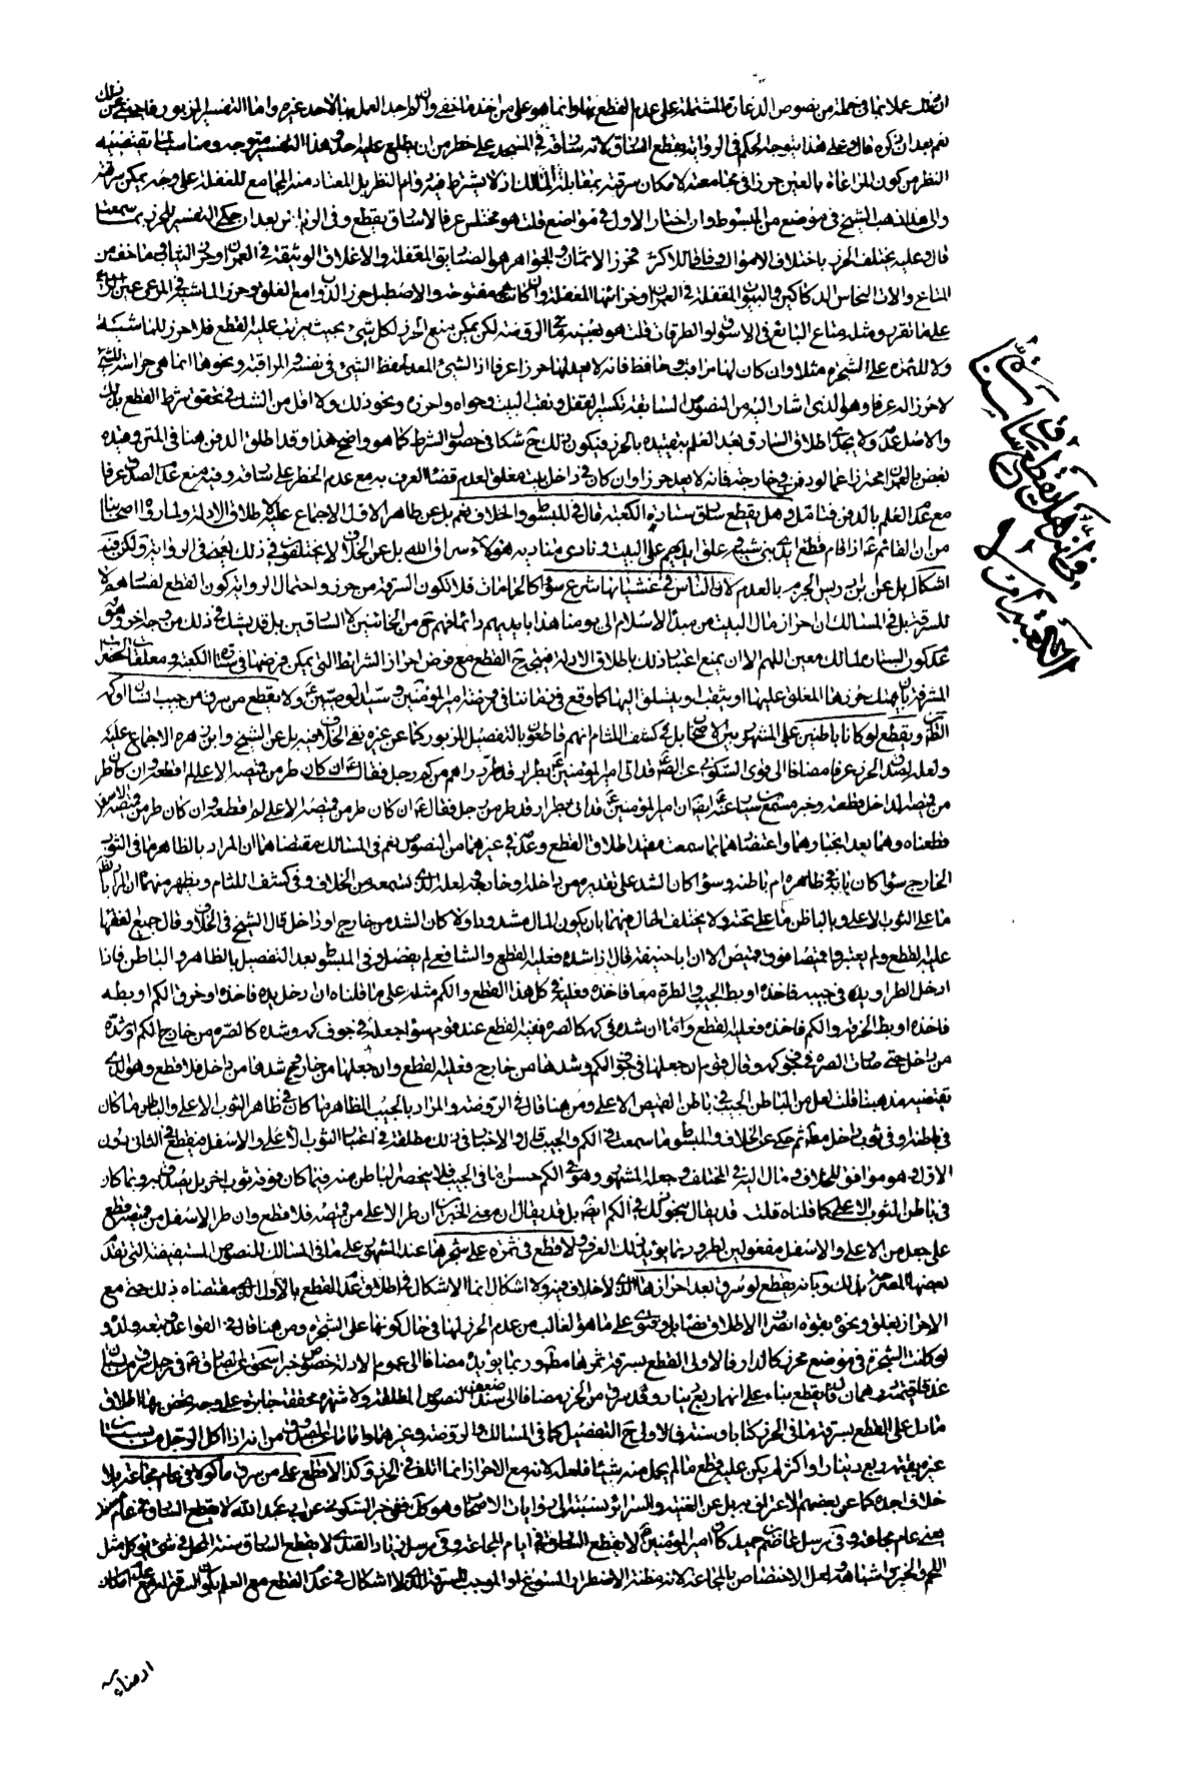 عملا بما في جملة من نصوص الدغارة المشتملة على عدم القطع بها وانما هو على من اخذ ثم اخفى واما التفسير المزبور
نعم بعد ان ذكره قال وعلى هذا يتوجه الحكم في الرواية بقطع السارق لانه في المسجد على خطر من ان يطلع عليه احد وهذا التفسير متوجه ومناسب لما تقتضيه
النظر من كون المراعاة بالعين حرزا في مجامعته لامكان سرقته بمقابلة المالك اذ لا يشترط فيه دوام النظر بل المعتاد منه المجامع للغفلة على وجه يمكن سرقته
والى هذا ذهب الشيخ في موضع من المبسوط وان اختار الاول في مواضع قلت هو مختلس عرفا لا سارق يقطع وفي الرواية بعد ان حكى التفسير للحرز بما سمعت
قال وعليه يختلف الحرز باختلاف الاموال وفاقا للاكثر فحرز الاثمان والجواهر هو الصناديق المقفلة والاغلاق الوثيقة في العمران وحرز الثياب وما خف من
المتاع والات النحاس الدكاكين والبيوت المقفلة في العمران وخزائنها المقفلة وان كانت هي مفتوحة والاصطبل حرز الدواب مع الغلق وحرز الماشية في المرعى عين الراعي
على ما تقرر ومثله متاع البايع في الاسواق والطرقات قلت هو نصيه في الروضة لكن يمكن منع الحرز لكل شيء بحيث يترتب عليه القطع فلا حرز للماشية
ولا للثمرة على الشجرة مثلا وان كان لها مراقب وحافظ فانه لا يعد لها حرزا عرفا اذ الشيئ المعد لحفظ الشيئ في نفسه والمراقبة ونحوها انما هي حراسة للشيئ
لا حرز له عرفا وهو الذي اشار اليه من النصوص السابقة بكسر القفل ونقب البيت وحواه واحرزه ونحو ذلك ولا اقل من الشك في تحقق شرط القطع بذلك
والاصل عدمه ولا يجدى اطلاق السارق بعد العلم بتقييده بالحرز فيكون ذلك ح شكا في حصول الشرط كما هو واضح هذا وقد اطلق الدفن هنا في المتن وقيده
بعض بالعمران محترزا عما لو دفن في خارجه فانه لا يعد حرزا وان كان في داخل بيت مغلق لعدم قضاء العرف به مع عدم الخطر على سارقه وفيه منع عدم الصدق عرفا
مع عدم العلم بالدفن فتامل وهل يقطع سارق ستارة الكعبة قال في المبسوط والخلاف نعم بل عن ظاهر الاول الاجماع عليه لاطلاق الادلة ولما رواه اصحابنا
من ان القائم ع اذا قام قطع ايدي بني شيبة وعلق ايديهم على البيت ونادى مناديه هؤلاء سراق الله بل عن الخلاف لا يختلفون في ذلك يعني في الرواية ولكن فيه
اشكال بل عن ابن ادريس الجزم بالعدم لان الناس في غشيانها شرع سواء كالحمامات فلا تكون السرقة من حرز واحتمال الرواية كون القطع لفسادهم لا
للسرقة بل في المسالك ان احراز مال البيت من مبدأ الاسلام الى يومنا هذا بايديهم دائما فهم ح من الخائنين لا السارقين بل قد يشك في ذلك من وجه اخر وهو
عدم كون الستارة لمالك معين اللهم الا ان يمنع اعتبار ذلك باطلاق الادلة فيتجه ح القطع مع فرض احراز الشرائط التي يمكن فرضها في ستارة الكعبة ومعلقات
المشرفة بان يهتك حرزها المغلق عليها او يثقب او يتسلق اليها كما وقع في زماننا في روضة امير المؤمنين وسيد الوصيين ع ولا يقطع من سرق من جيب انسان او كمه
الظاهرين ويقطع لو كانا باطنين على المشهور بين الاصحاب بل في كشف اللثام انهم قاطعون بالتفصيل المزبور كما عن غيره نفي الخلاف فيه بل عن الشيخ وابن زهرة الاجماع عليه
ولعله لصدق الحرز عرفا مضافا الى قوى السكوني عن الصادق ع قد اتى امير المؤمنين ع بطرار قد طر دراهم من كم رجل فقال ع ان كان طر من قميصه الاعلى لم اقطعه وان كان طر
من قميصه الداخل قطعته وخبر مسمع بن سيار عنه ايضا ان امير المؤمنين ع قد اتى بطرار قد طر من رجل فقال ع ان كان طر من قميصه الاعلى لم اقطعه وان كان طر من قميصه الاسفل
قطعناه وهما بعد انجبارهما واعتضادهما بما سمعت مقيدا اطلاق القطع وعدمه في غيرهما من النصوص نعم في المسالك مقتضاهما ان المراد بالظاهر ما في الثوب
الخارج سواء كان بابه في ظاهره ام باطنه وسواء كان الشد على تقديره من داخله او خارجه ولعله لذا تسمعه من الخلاف وفي كشف اللثام ويظهر منهما ان المراد بالظاهر
ما على الثوب الاعلى وبالباطن ما على تحته ولا يختلف الحال فيهما بان يكون المال مشدودا اولا كان الشد من خارج او داخل قال الشيخ في الخلاف وقال جميع الفقهاء
عليه القطع ولم يعتبروا قميصا فوق قميص الا ان ابا حنيفة قال اذا شده فعليه القطع والشافعي لم يفصل وفي المبسوط بعد التفصيل بالظاهر والباطن فاذا
ادخل الطرار يده في جيبه فاخذه او بط الجيب والطرة معا فاخذه فعليه في كل هذا القطع والكم مثله على ما قلناه ان ادخل يده فاخذه او خرق الكم او بطه
فاخذه او بط الخرقة والكم فاخذه فعليه القطع واما ان شده في كمه كالصرة ففيه القطع عند قوم سواء جعله في جوف كمه وشده كالصرة من خارج الكم او شده
من داخل حتى صارت الصرة في جوف كمه وقال قوم ان جعلها في جوف الكم وشدها من خارج فعليه القطع وان جعلها من خارج وشدها من داخل فلا قطع وهو الذي
تقتضيه مذهبنا قلت لعل من الباطن الجيب في باطن القميص الاعلى ومن هنا قال في الروضة والمراد بالجيب الظاهر ما كان في ظاهر الثوب الاعلى والباطن ما كان
في باطنه او في ثوب داخل مطلقا ثم حكى عن الخلاف والمبسوط ما سمعت في الكم والجيب قال والاخبار في ذلك مطلقة في اعتبار الثوب الاعلى والاسفل فيقطع في الثاني دون
الاول وهو موافق للخلاف ومال اليه في المختلف وجعله المشهور وهو في الكم حسن اما في الجيب فلا ينحصر الباطن منه فيما كان فوقه ثوب اخر بل يصدق به وبما كان
في باطن الثوب الاعلى كما قلناه قلت قد يقال بنحو ذلك في الكم ايضا بل قد يقال ان معنى الخبرين ان طر الاعلى من قميصه فلا قطع وان طر الاسفل من قميصه قطع
على جعل من الاعلى والاسفل مفعولين لطر وربما يؤيد ذلك العرف ولا قطع في ثمرة على شجرها عند المشهور على ما في المسالك للنصوص المستفيضة التي تقدم
بعضها المصرحة بذلك وبانه يقطع لو سرق بعد احرازها الذي لا خلاف فيه ولا اشكال انما الاشكال في اطلاق عدم القطع بالاول الذي مقتضاه ذلك حتى مع
الاحراز بغلق ونحوه بقوة انصراف الاطلاق نصا وفتوى على ما هو الغالب من عدم الحرز لها في حال كونها على الشجرة ومن هنا قال في القواعد وتبعه ولده و
لو كانت الشجرة في موضع محرز كالدار فالاولى القطع بسرقة ثمرها مط وربما يؤيده مضافا الى عموم الادلة خصوص خبر اسحق عن الصادق ع في رجل سرق من بستان
عذقا قيمته درهمان قال يقطع بناء على انهما ربع دينار وقد سرق من الحرز مضافا الى ضعف سند النصوص المطلقة ولا شهرة محققة جابرة على وجه يخص بها اطلاق
ما دل على القطع بسرقة ما في الحرز كتابا وسنة فالاولى ح التفصيل كما في المسالك والروضة وغيرهما واما ما في من انه اذا اكل الرجل من بستان
غيره بقيمة ربع دينار او اكثر لم يكن عليه قطع ما لم يحمل منه شيئا فلعله لانه مع الاحراز انما اتلف في الحرز وكذا لا قطع على من سرق ماكولا في عام مجاعة بلا
خلاف اجده كما عن بعضهم الاعتراف به بل عن الغنية والسرائر نسبته الى روايات الاصحاب وهو كك ففي خبر السكوني عن ابي عبد الله لا يقطع السارق في عام
يعني عام مجاعة وفي مرسل عاصم بن حميد كان امير المؤمنين ع لا يقطع السارق في ايام المجاعة وفي مرسل زياد القندى لا يقطع السارق في سنة المحل في شيئ يؤكل مثل
اللحم والخبز واشباهه ولعل الاختصاص بالمجاعة لانه مظنة الاضطرار المسوغ لو الموجب للسرقة لا اشكال في عدم القطع مع العلم بكون السرقة
وفي انه هل يقطع سارق ستارة
الكعبة ام لا